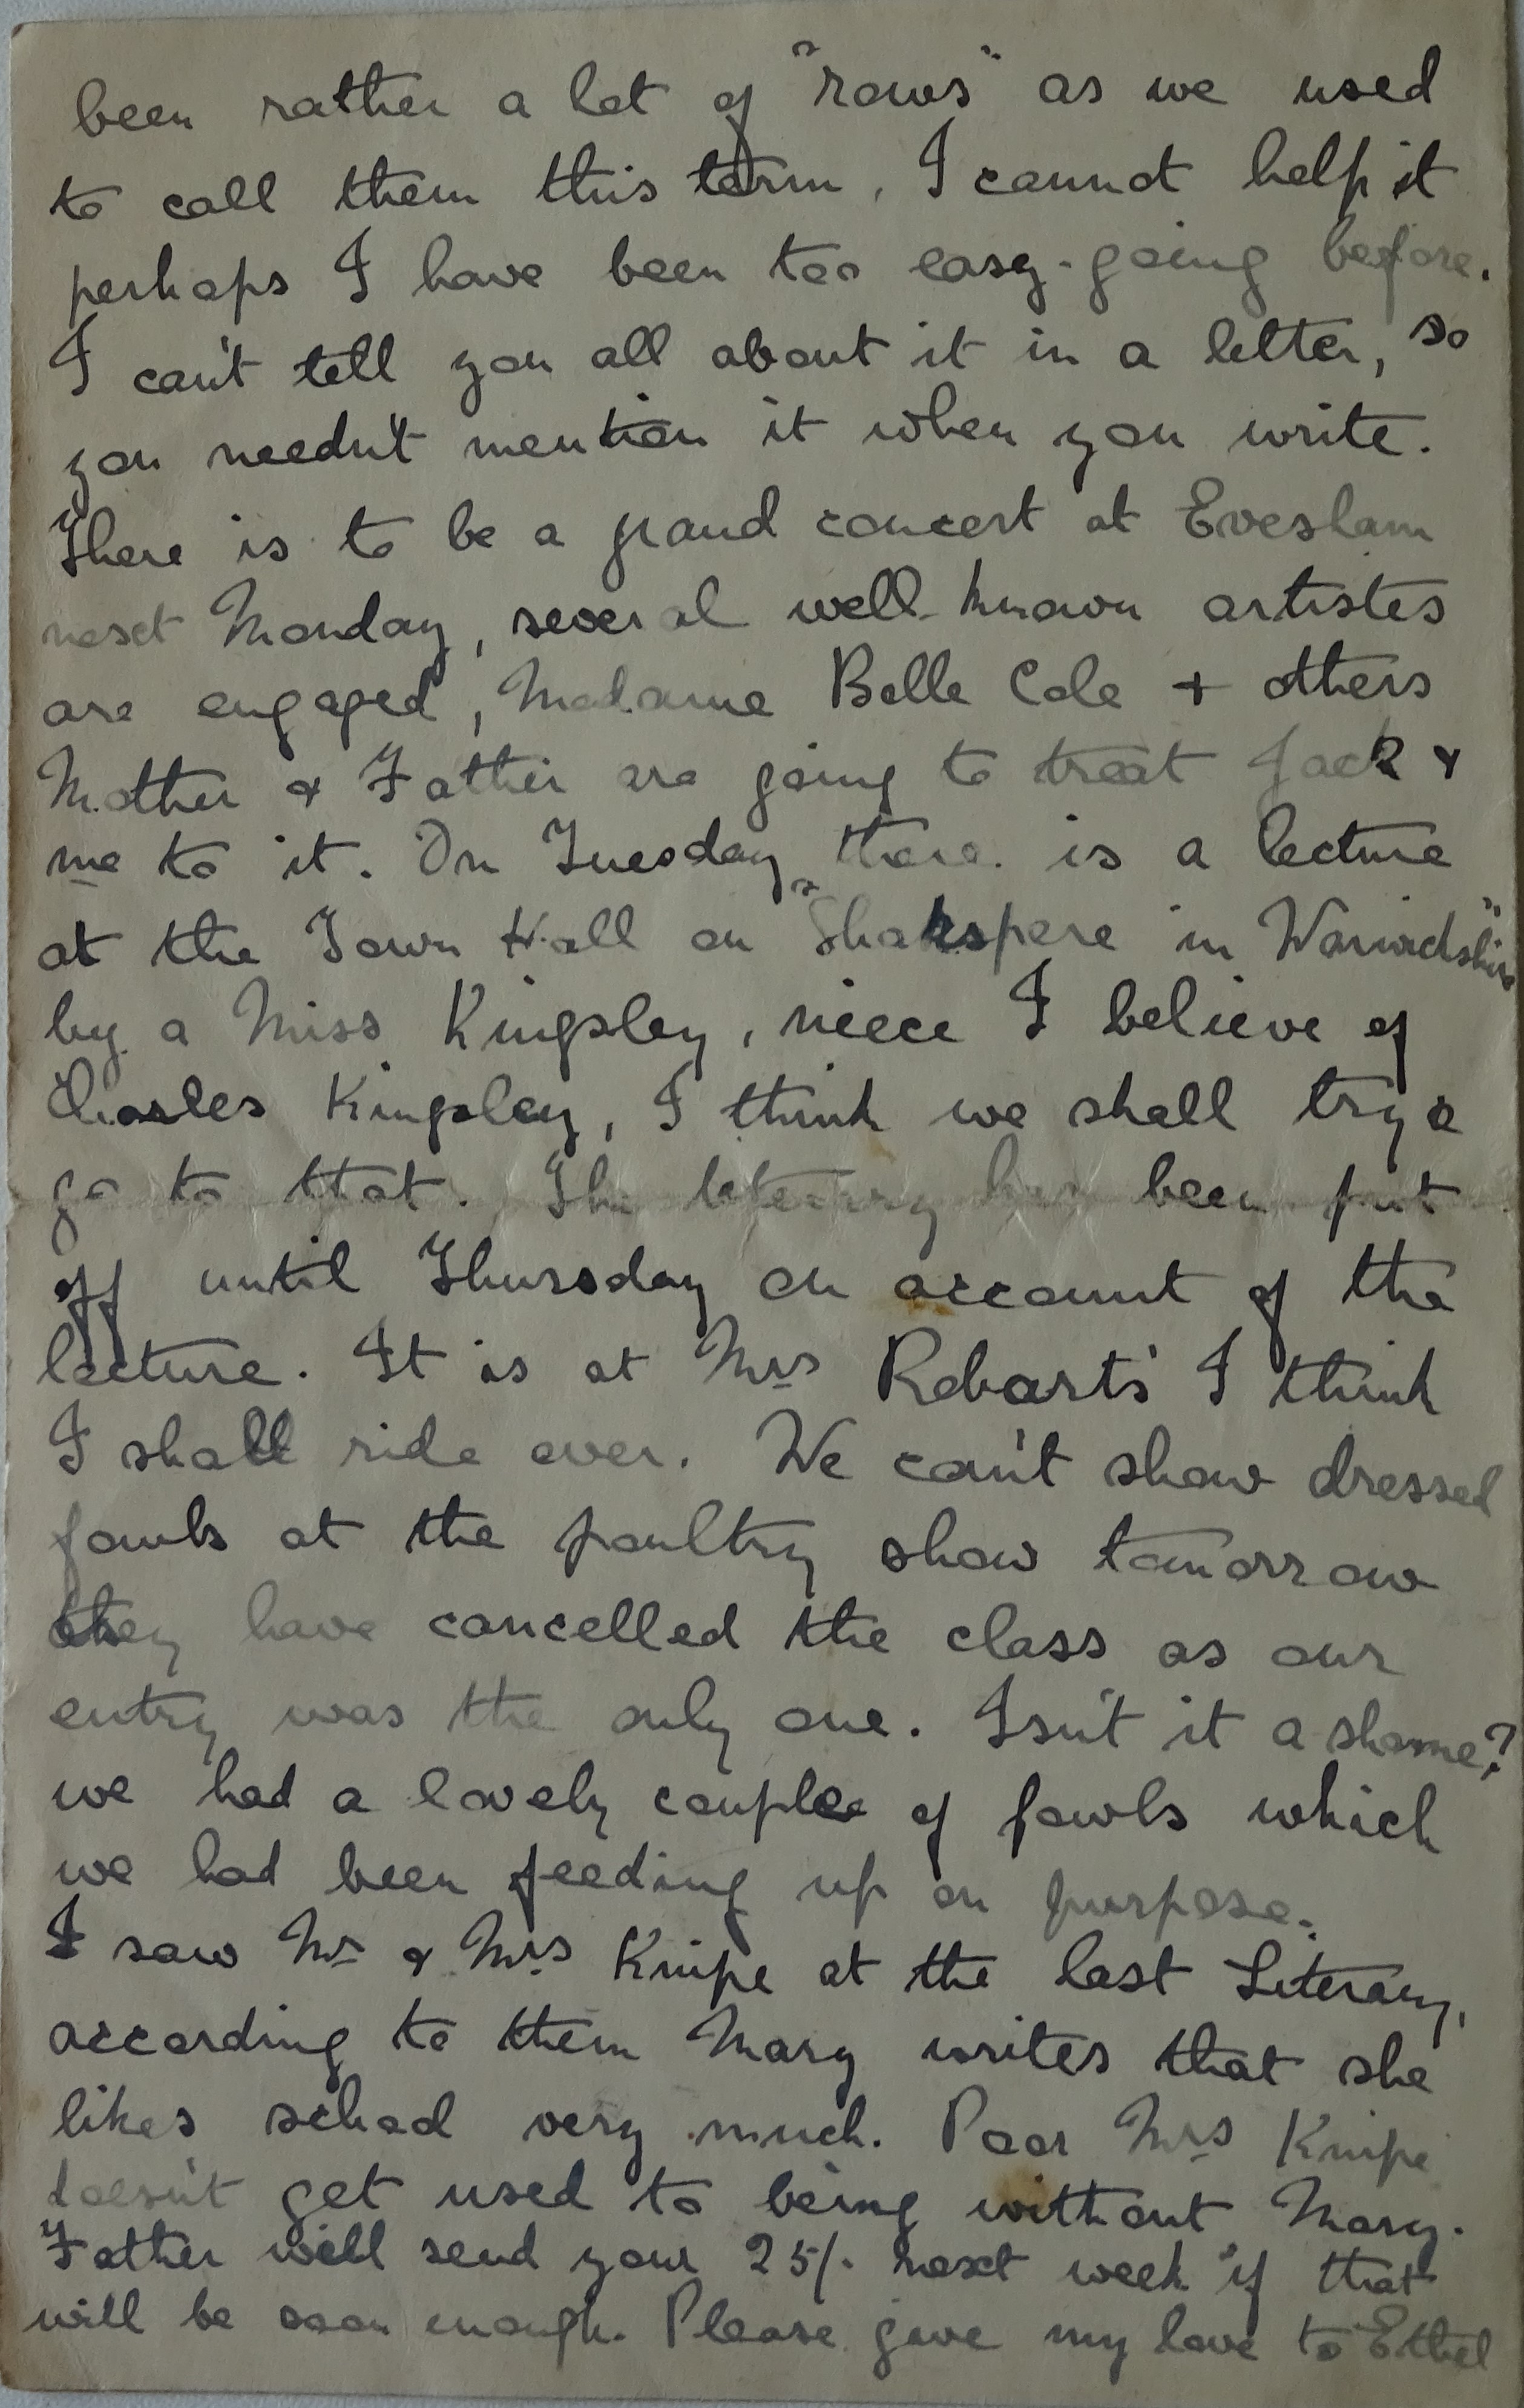 been rather a lot of "rows" as we used
to call them this term, I cannot help it
perhaps I have been too easy-going before.
I can't tell you all about it in a letter, so
you needn't mention it when you write.
There is to be a grand concert at Evesham
next Monday, several well-known artistes
are engaged, Madame Belle Cole + others
Mother & Father are going to treat Jack &
me to it. On Tuesday there is a lecture
at the Town Hall on "Shakspere in Warwickshire"
by a Miss Kingsley, niece I believe of
Charles Kingsley, I think we shall try &
go to that. The literary has been put
off until Thursday on account of the
lecture. It is at Mrs Robarts' I think
I shall ride over. We can't show dressed
fowls at the poultry show tomorrow
they have cancelled the class as our
entry was the only one. Isn't it a shame?
we had a lovely couple of fowls which
we had been feeding up on purpose.
I saw Mr & Mrs Knipe at the last Literary,
according to them Mary writes that she
likes school very much. Poor Mrs Knipe
doesn't get used to being without Mary.
Father will send your 25/- next week if that
will be soon enough. Please give my love to Ethel